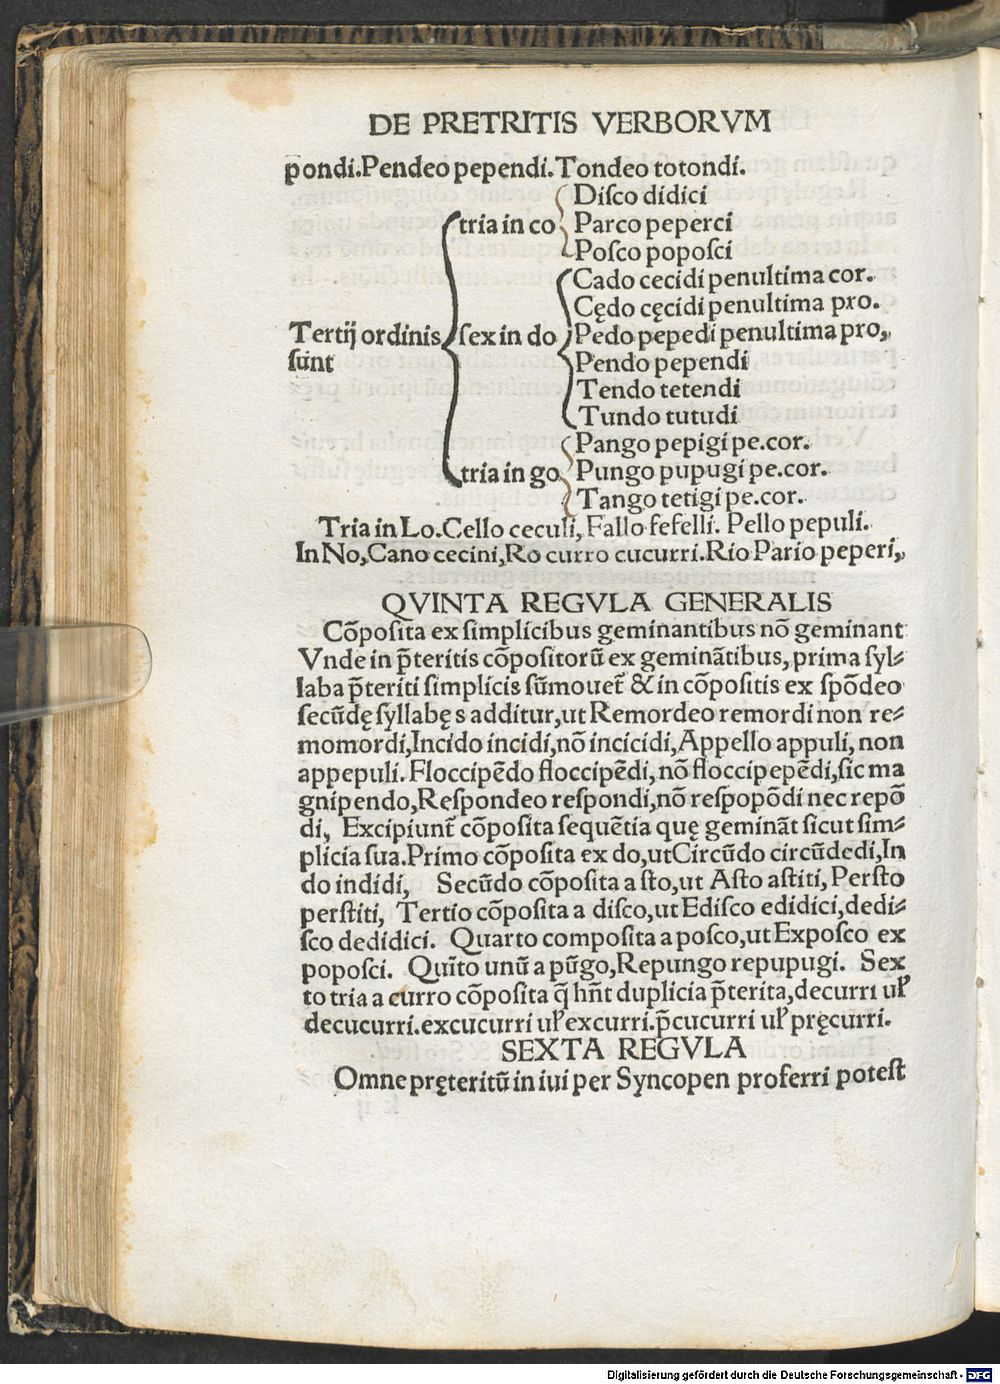 DE PRETRITIS VERBORVM
pondi.Pendeo pependi.Tondeo totondi.
Diſco didici
tria in co Parco peperci
Poſco popoſci
Cado cecidi penultima cor.
Cędo cęcidi penultima pro.
Tertij ordinis ſex in do Pedo pepedi penultima pro,
ſūnt Pendo pependi
Tendo tetendi
Tundo tutudi
Pango pepigi pe.cor.
tria in go Pungo pupugi pe.cor.
Tango tetigi pe.cor.
Tria in Lo.Cello ceculi, Fallo fefelli. Pello pepuli.
In No, Cano cecini, Ro curro cucurri.Rio Pario peperi,
QVINTA REGVLA GENERALIS
Cōpoſita ex ſimplicibus geminantibus nō geminant
Vnde in p̄teritis cōpoſitorū ex geminātibus, prima ſyl⸗
laba p̄teriti ſimplicis ſūmouet̄ & in cōpoſitis ex ſpōdeo
ſecūdę ſyllabę s additur, ut Remordeo remordi non re⸗
momordi, Incido incidi, nō incicidi, Appello appuli, non
appepuli. Floccipēdo floccipēdi, nō floccipepēdi, ſic ma
gnipendo, Reſpondeo reſpondi, nō reſpopōdi nec repō
di, Excipiunt̄ cōpoſita ſequētia quę gemināt ſicut ſim⸗
plicia ſua.Primo cōpoſita ex do, ut Circūdo circūdedi, In
do indidi, Secūdo cōpoſita a ſto, ut Aſto aſtiti, Perſto
perſtiti, Tertio cōpoſita a diſco, ut Ediſco edidici, dedi⸗
ſco dedidici. Quarto compoſita a poſco, ut Expoſco ex
popoſci. Quīto unū a pūgo, Repungo repupugi. Sex
to tria a curro cōpoſita q̄ hn̄t duplicia p̄terita, decurri ul̕
decucurri.excucurri ul̕ excurri.p̄cucurri ul̕ pręcurri.
SEXTA REGVLA
Omne pręteritū in iui per Syncopen proferri poteſt
Digitalisierung gefördert durch die Deutsche Forschungsgemeinschaft - DFG